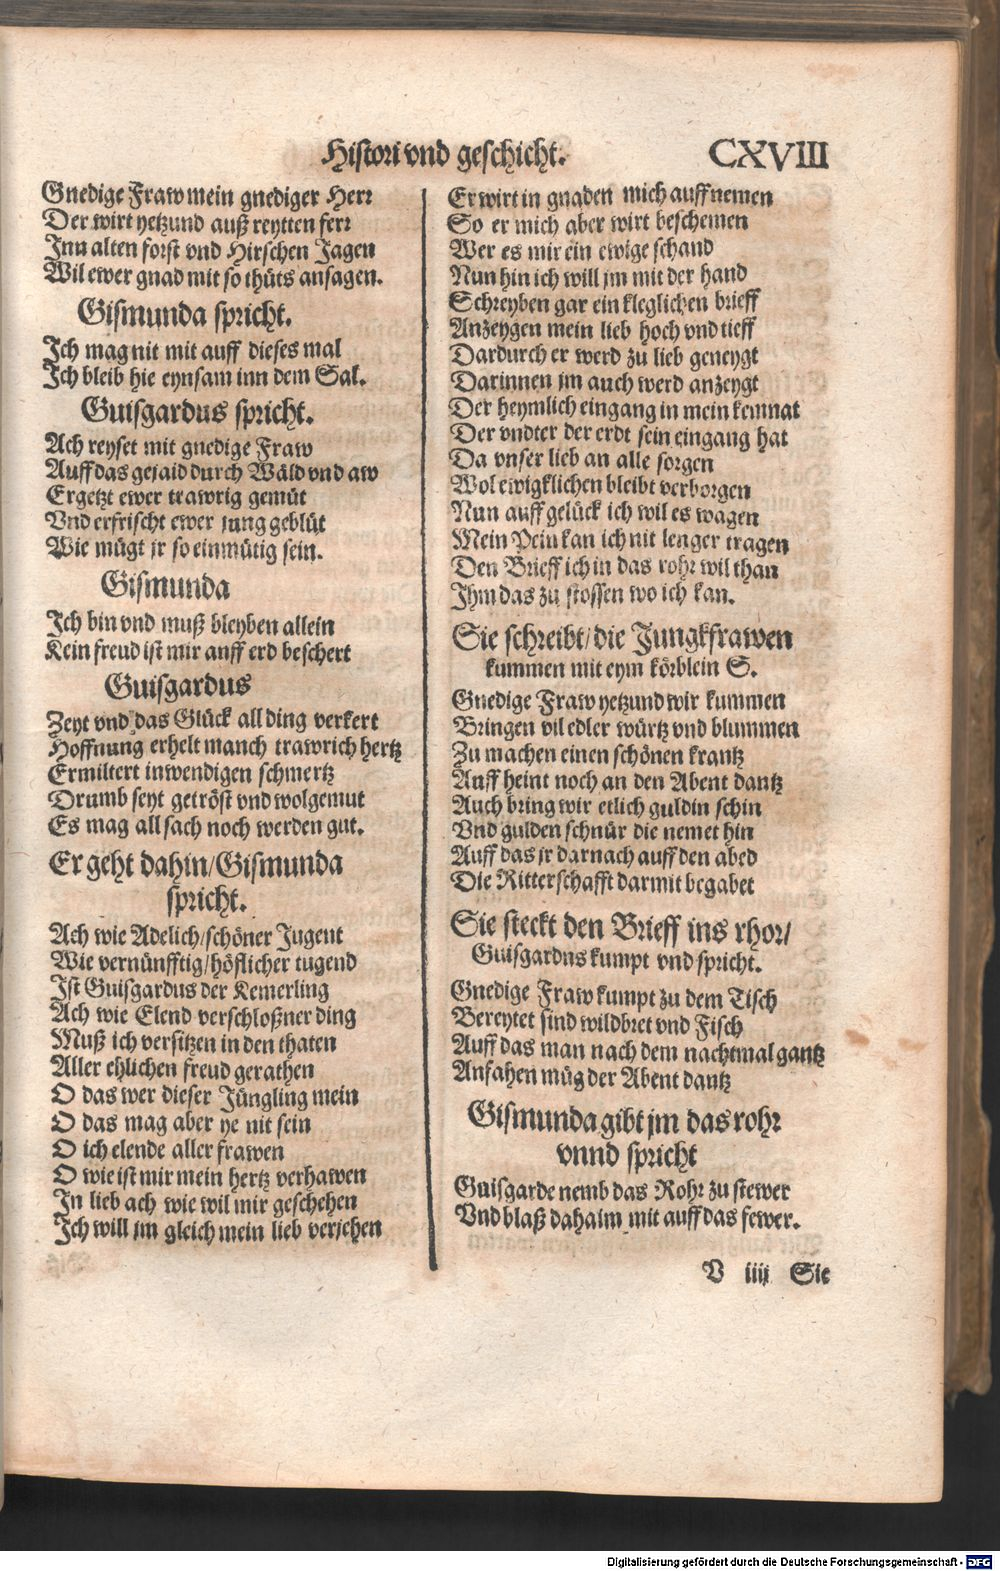 Histori vnd geschicht. CXVIII
Gnedige Fraw mein gnediger Herr
Der wirt yetzund auß reytten ferr
Inn alten forst vnd Hirschen Jagen
Wil ewer gnad mit so thüts ansagen.
Gismunda spricht.
Ich mag nit mit auff dieses mal
Ich bleib hie eynsam inn dem Sal.
Guisgardus spricht.
Ach reyset mit gnedige Fraw
Auff das gejaid durch Wäld vnd aw
Ergetzt ewer trawrig gemüt
Vnd erfrischt ewer jung geblüt
Wie mügt jr so einmütig sein.
Gismunda
Ich bin vnd muß bleyben allein
Kein freud ist mir auff erd beschert
Guisgardus
Zeyt vnd das Glück all ding verkert
Hoffnung erhelt manch trawrich hertz
Ermiltert inwendigen schmertz
Drumb seyt getröst vnd wolgemut
Es mag all sach noch werden gut.
Er geht dahin/Gismunda
spricht.
Ach wie Adelich/schöner Jugent
Wie vernünfftig/höflicher tugend
Ist Guisgardus der Kemerling
Ach wie Elend verschloßner ding
Muß ich versitzen in den thaten
Aller ehlichen freud gerathen
O das wer dieser Jüngling mein
O das mag aber ye nit sein
O ich elende aller frawen
O wie ist mir mein hertz verhawen
In lieb ach wie wil mir geschehen
Ich will jm gleich mein lieb verjehen
Er wirt in gnaden mich auffnemen
So er mich aber wirt beschemen
Wer es mir ein ewige schand
Nun hin ich will jm mit der hand
Schreyben gar ein kleglichen brieff
Anzeygen mein lieb hoch vnd tieff
Dardurch er werd zu lieb geneygt
Darinnen jm auch werd anzeygt
Der heymlich eingang in mein kemnat
Der vndter der erdt sein eingang hat
Da vnser lieb an alle sorgen
Wol ewigklichen bleibt verborgen
Nun auff gelück ich wil es wagen
Mein Pein kan ich nit lenger tragen
Den Brieff ich in das rohr wil than
Ihm das zu stossen wo ich kan.
Sie schreibt/die Jungkfrawen
kummen mit eym körblein S.
Gnedige Fraw yetzund wir kummen
Bringen vil edler würtz vnd blummen
Zu machen einen schönen krantz
Auff heint noch an den Abent dantz
Auch bring wir etlich guldin schin
Vnd gulden schnür die nemet hin
Auff das jr darnach auff den abed
Die Ritterschafft darmit begabet
Sie steckt den Brieff ins rhor/
Guisgardus kumpt vnd spricht.
Gnedige Fraw kumpt zu dem Tisch
Bereytet sind wildbret vnd Fisch
Auff das man nach dem nachtmal gantz
Anfahen müg der Abent dantz
Gismunda gibt jm das rohr
vnnd spricht
Guisgarde nemb das Rohr zu stewer
Vnd blaß dahaim mit auff das fewer.
V iiij Sie
Digitalisierung gefördert durch die Deutsche Forschungsgemeinschaft - DFG